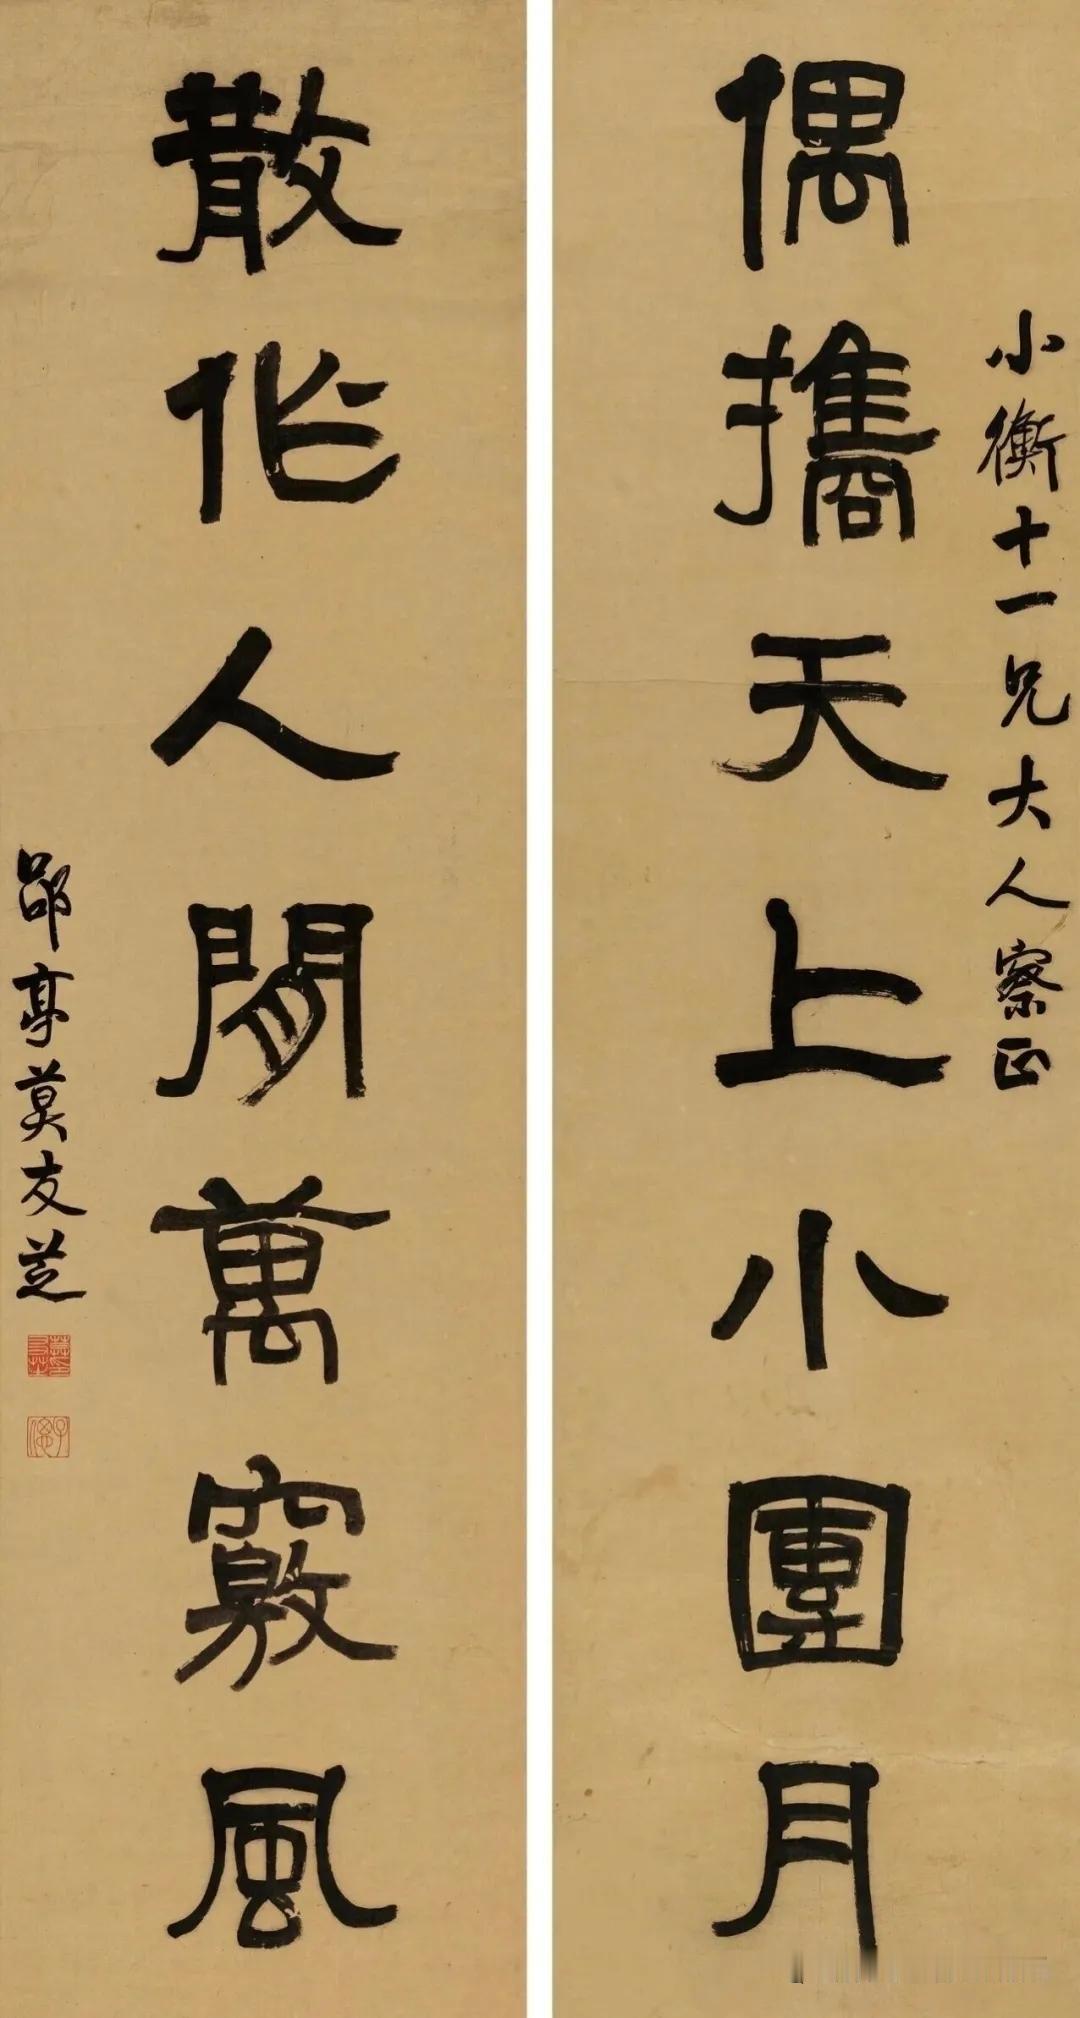 小衡十一兄大人察正
偶攜天上小團月
散作人閒萬竅風
郘亭莫友芝